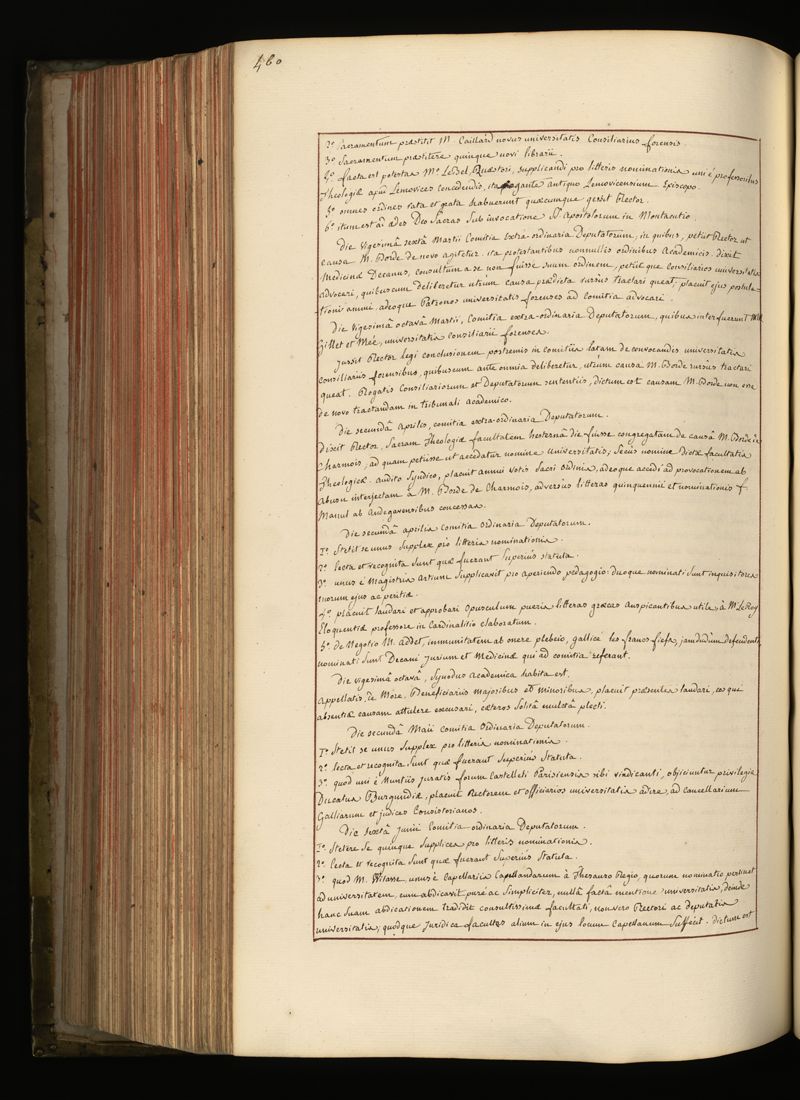 460
2.º Sacramentum præstitit M. Caillard novus universitatis Consiliarius forensis.
3.º Sacramentum præstitere quinque novi librarii.
4.º facta est potestas M.º LeBel, Quæstori, supplicandi pro litteris nominationis uni è professoribus
Theologiæ apud Lemovices concedendis, ita rogante antiquo Lemovicensium Episcopo.
5.º omnes ordines rata et grata habuerunt quæcumque gessit Rector.
6.º itum est ad ædes Deo Sacras Sub invocatione SS. Apostolorum in Montantio
Die vigesimâ sextâ Martii Comitia extra-ordinaria Deputatorum, in quibus, petiit Rector ut
causa M. Borde de novo agitetur. ita protestantibus nonnullis ordinibus Academicis. dixit
Medicinæ Decanus, consultum a se non fuisse suum ordinem, petiitque consiliarios universitatis
advocari, quibuscum deliberetur utrùm causa prædicta rursùs tractari queat; placuit ejus postula-
tioni annui, adeoque Patronos universitatis forenses ad Comitia advocari.
Die vigesimâ octavâ Martii, Comitia extra-ordinaria Deputatorum, quibus interfuerunt MM.
Gillet et Méé, universitatis consiliarii forenses.
Jussit Rector legi conclusionem postremis in comitiis latam de convocandis universitatis
consiliariis forensibus, quibuscum ante omnia deliberetur, utrùm causa M. Borde rursùs tractari
queat. Rogatis Consiliariorum et Deputatorum sententiis, dictum est causam M. Borde non esse
de novo tractandam in tribunali academico.
Die secundâ Aprilis, comitia extra-ordinaria Deputatorum.
Dixit Rector, Sacram Theologiæ facultatem hesternâ die fuisse congregatam de causâ M. Borde de
Charmois, ad quam petiisse ut accedatur nomine universitatis; Secùs nomine Dictæ facultatis
Theologicæ. audito Syndico, placuit annui votis Sacri ordinis, adeoque accedi ad provocationem ab
abusu interjectam à M. Borde de Charmois, adversùs litteras quinquennii et nominationis f.
Manul ab Andegavensibus concessas.
Die secundâ aprilis Comitia ordinaria Deputatorum.
1.º Stetit se unus Supplex pro litteris nominationis.
2.º lecta et recognita Sunt quæ fuerant Superiùs statuta.
3.º unus è Magistris artium supplicavit pro aperiendo pedagogio. duoque nominati Sunt inquisitores
morum ejus ac peritiæ.
4.º placuit laudari et approbari Opusculum pueris litteras græcas auspicantibus utile, à M. LeRoy
Eloquentiæ professore in Cardinalitio elaboratum.
5.º de Negotio M. addet, immunitatem ab onere plebeio, gallicè les francs fiefs, jamdudum defendente
nominati Sunt Decani Jurium et Medicinæ qui ad comitia referant.
Die vigesimâ octavâ, Synodus academica habita est.
Appellatis, de More, Beneficiariis majoribus et minoribus, placuit præsentes laudari, eos qui
absentiæ causam attulere excusari, cæteros solitâ mulctâ plecti.
Die secundâ Maii comitia ordinaria Deputatorum.
1.º Stetit se unus Supplex pro litteris nominationis.
2.º lecta et recognita Sunt quæ fuerant Superiùs Statuta.
3.º quod uni è Nuntiis juratis forum Castelleti Parisiensis sibi vindicanti, objiciuntur privilegia
Ducatus Burgundiæ, placuit Rectorem et officiarios universitatis adire, ad cancellarium
Galliarum et judices Consistorianos.
Die sextâ Junii Comitia ordinaria Deputatorum.
1.º Stetere Se quinque Supplices pro litteris nominationis.
2.º lecta et recognita Sunt quæ fuerant Superiùs Statuta.
3.º quod M. Witasse, unus è Capellaniis Capellandarum à Thesauro Regio, quorum nominatio pertinet
ad universitatem, eum abdicavit purè ac Simpliciter, nullâ factâ mentione universitatis, deinde
hanc suam abdicationem tradidit consultissimæ facultati, non vero Rectori ac deputatis
universitatis; quodque Juridica facultas alium in ejus locum Capellanum Suffecit. dictum est